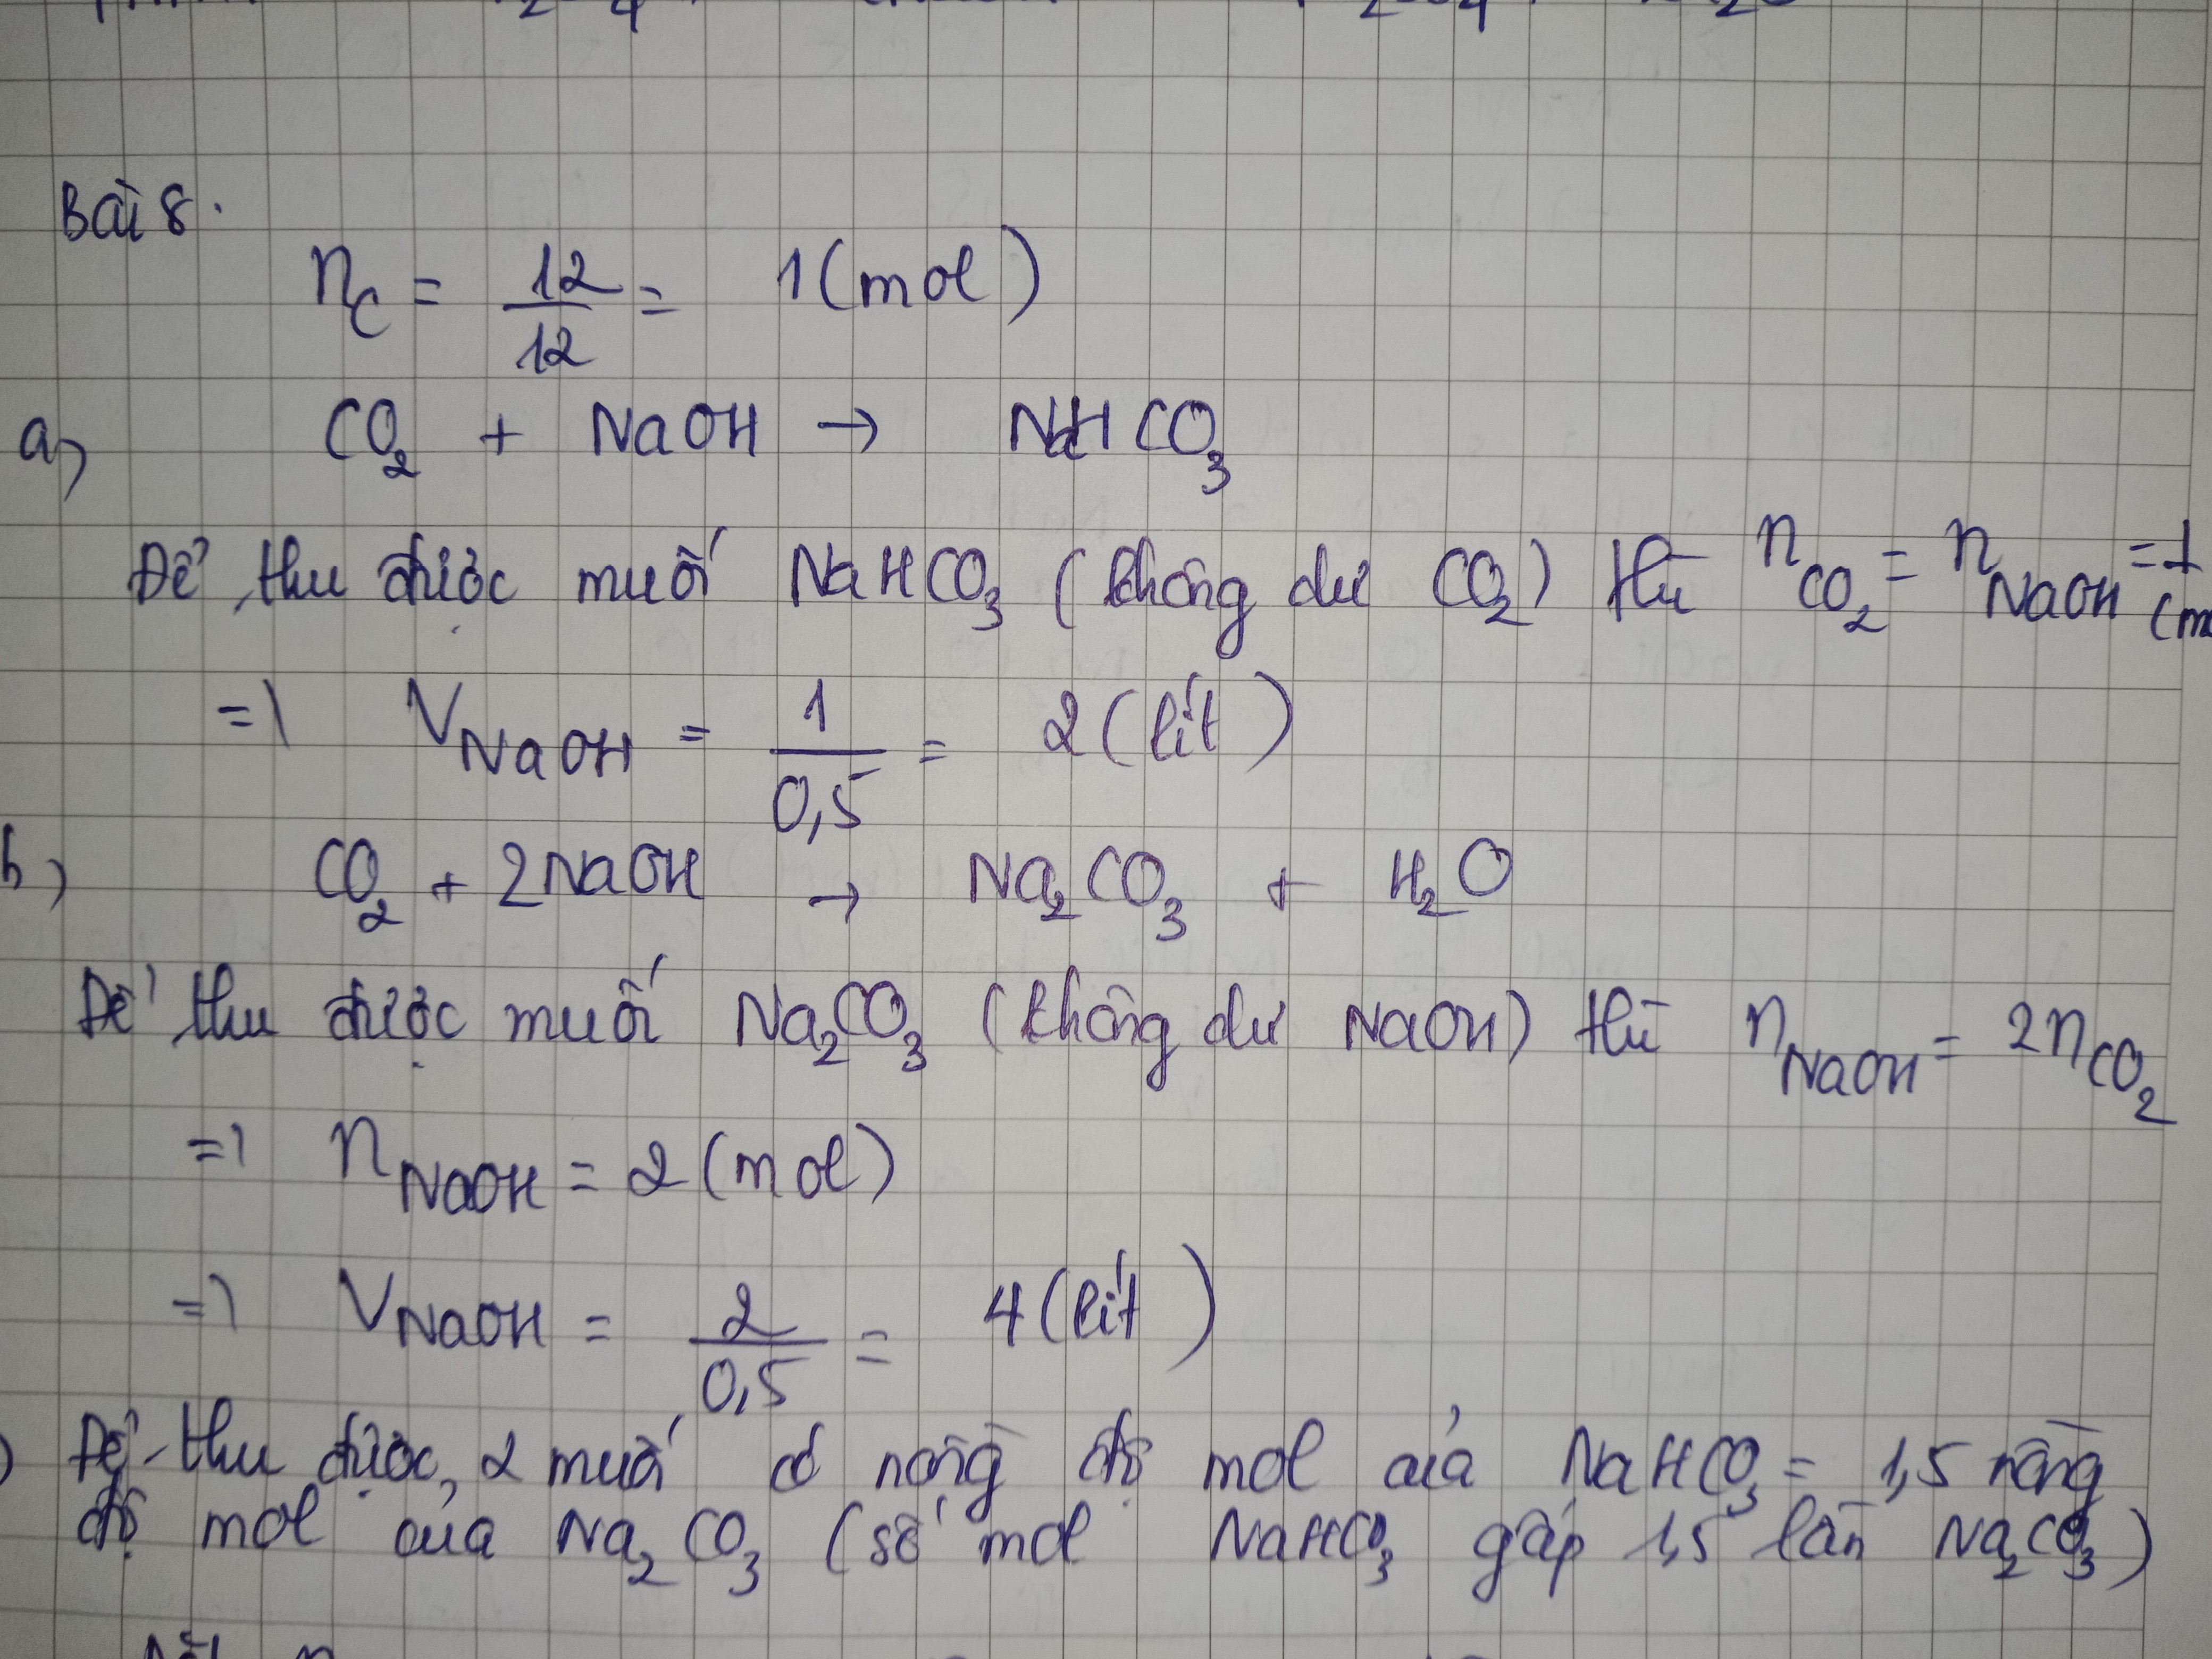 Bài 8.
n_C = 12/12 = 1 (mol)
a) CO₂ + NaOH → NaHCO₃
Để thu được muối NaHCO₃ (không dư CO₂) thì n_CO₂ = n_NaOH = 1 (m
=> V_NaOH = 1/0,5 = 2 (lít)
b) CO₂ + 2NaOH → Na₂CO₃ + H₂O
Để thu được muối Na₂CO₃ (không dư NaOH) thì n_NaOH = 2n_CO₂
=> n_NaOH = 2 (mol)
=> V_NaOH = 2/0,5 = 4 (lít)
) Để thu được 2 muối có nồng độ mol của NaHCO₃ = 1,5 nồng
độ mol của Na₂CO₃ (số mol NaHCO₃ gấp 1,5 lần Na₂CO₃)